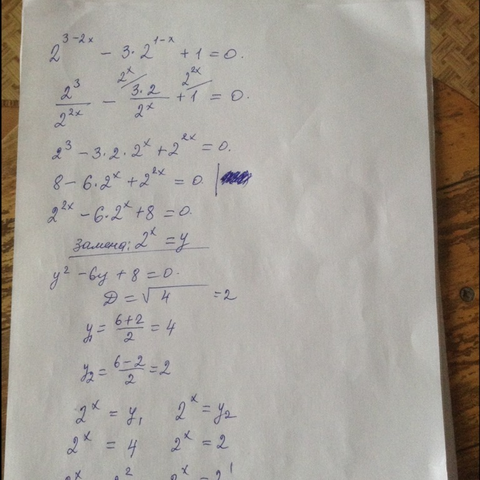 2^{3-2x} - 3·2^{1-x} + 1 = 0.
\frac{2^3}{2^{2x}} - \frac{3·2}{2^x}^{/2^x} + 1^{/2^{2x}} = 0.
2^3 - 3·2·2^x + 2^{2x} = 0.
8 - 6·2^x + 2^{2x} = 0 |
2^{2x} - 6·2^x + 8 = 0.
Замена: 2^x = y
y^2 - 6y + 8 = 0.
D = \sqrt{4} = 2
y_1 = \frac{6+2}{2} = 4
y_2 = \frac{6-2}{2} = 2
2^x = y_1 2^x = y_2
2^x = 4 2^x = 2
2^x = 2^2 2^x = 2^1